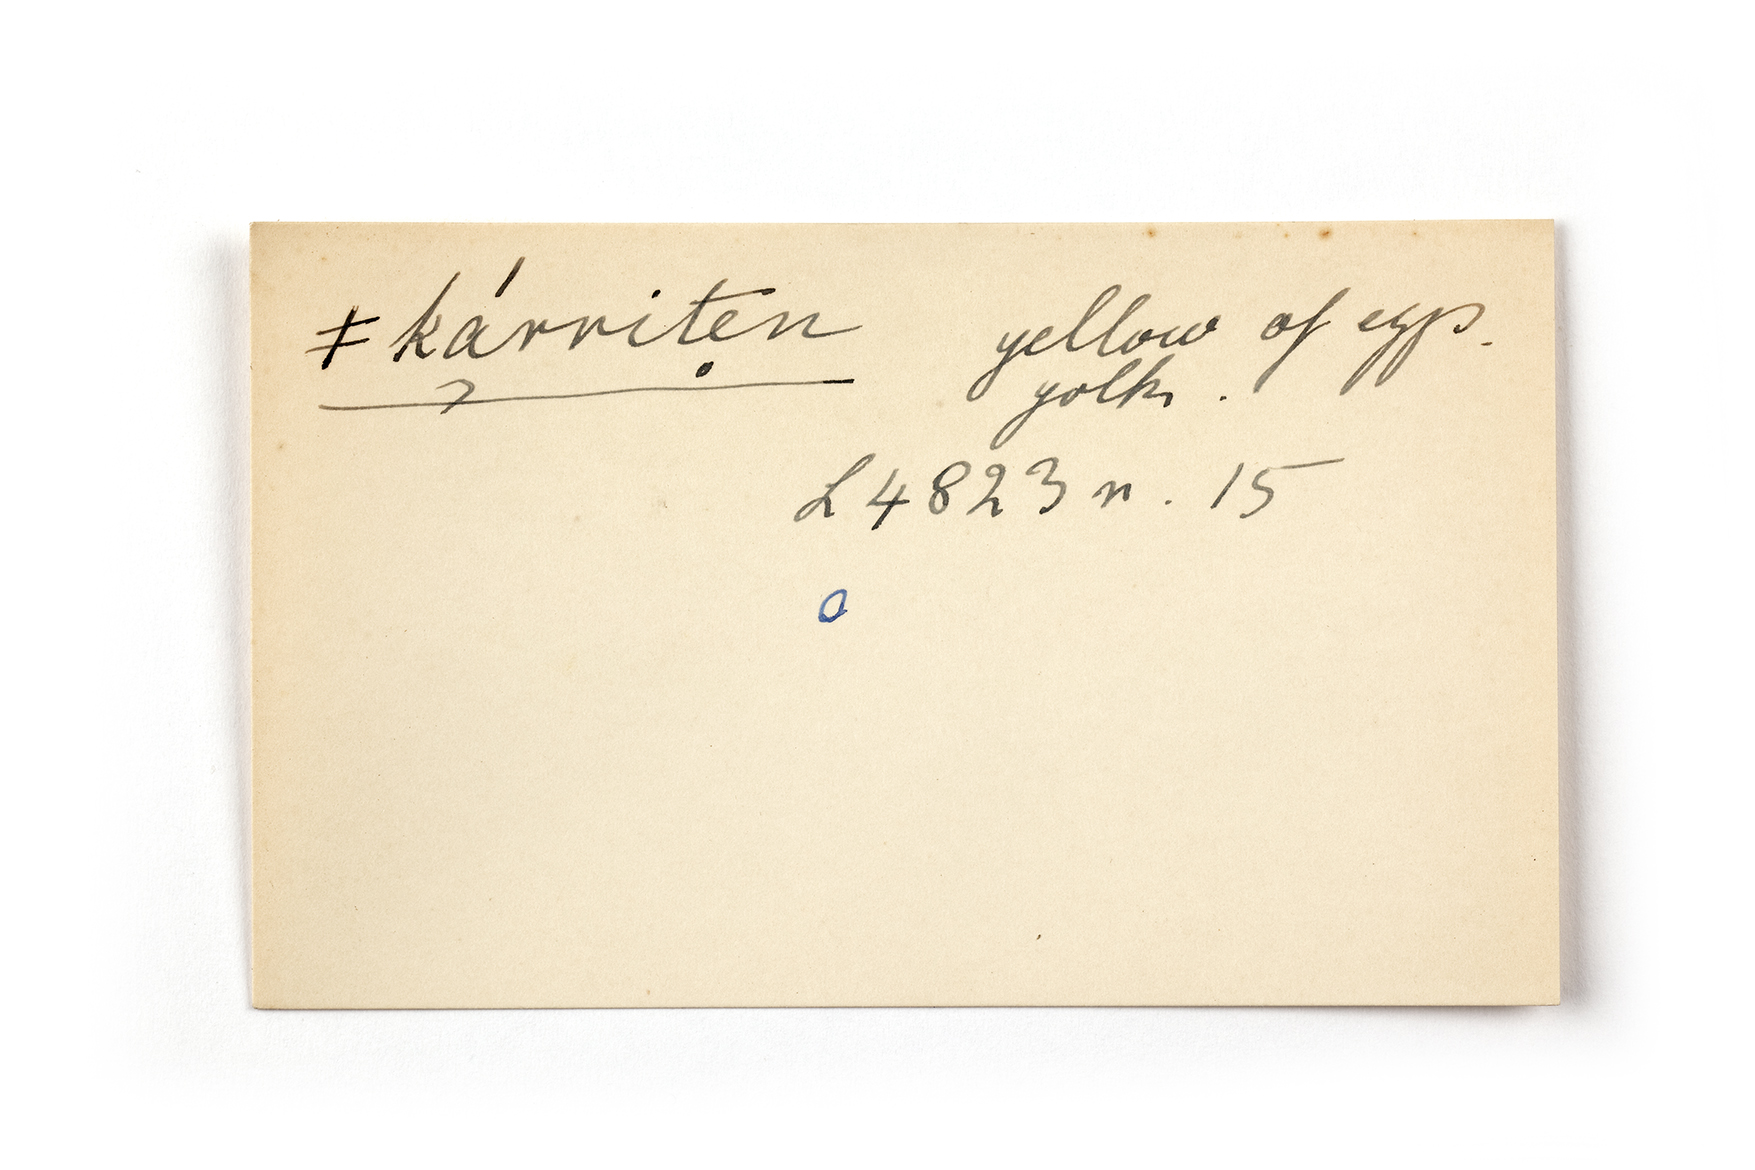 ǂkárriten yellow of egg.
yolk.
L4823 n. 15
o